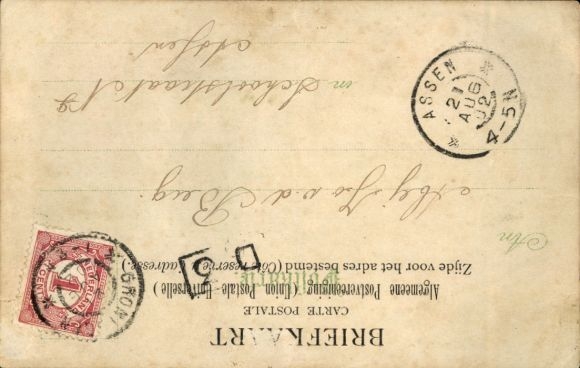 BRIEFKAART
CARTE POSTALE
Algemeene Postvereeniging (Union Postale Universelle)
Zijde voor het adres bestemd (Côté réservé à l'adresse.)
An
Mej Jo v d Berg
in Schoolstraat
Assen
ASSEN
21 AUG 02
4-5N
NEDERLAND
1
CENT
GRONI
5